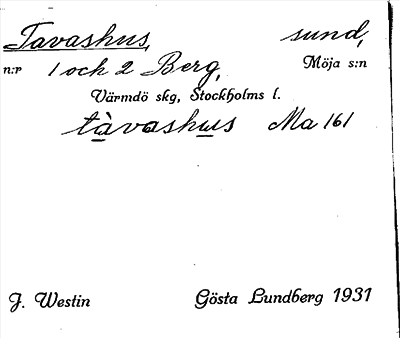 Tavashus, sund,
n:r 1 och 2 Berg, Möja s:n
Värmdö skg, Stockholms l.
tàvashus Ma 161
J. Westin Gösta Lundberg 1931